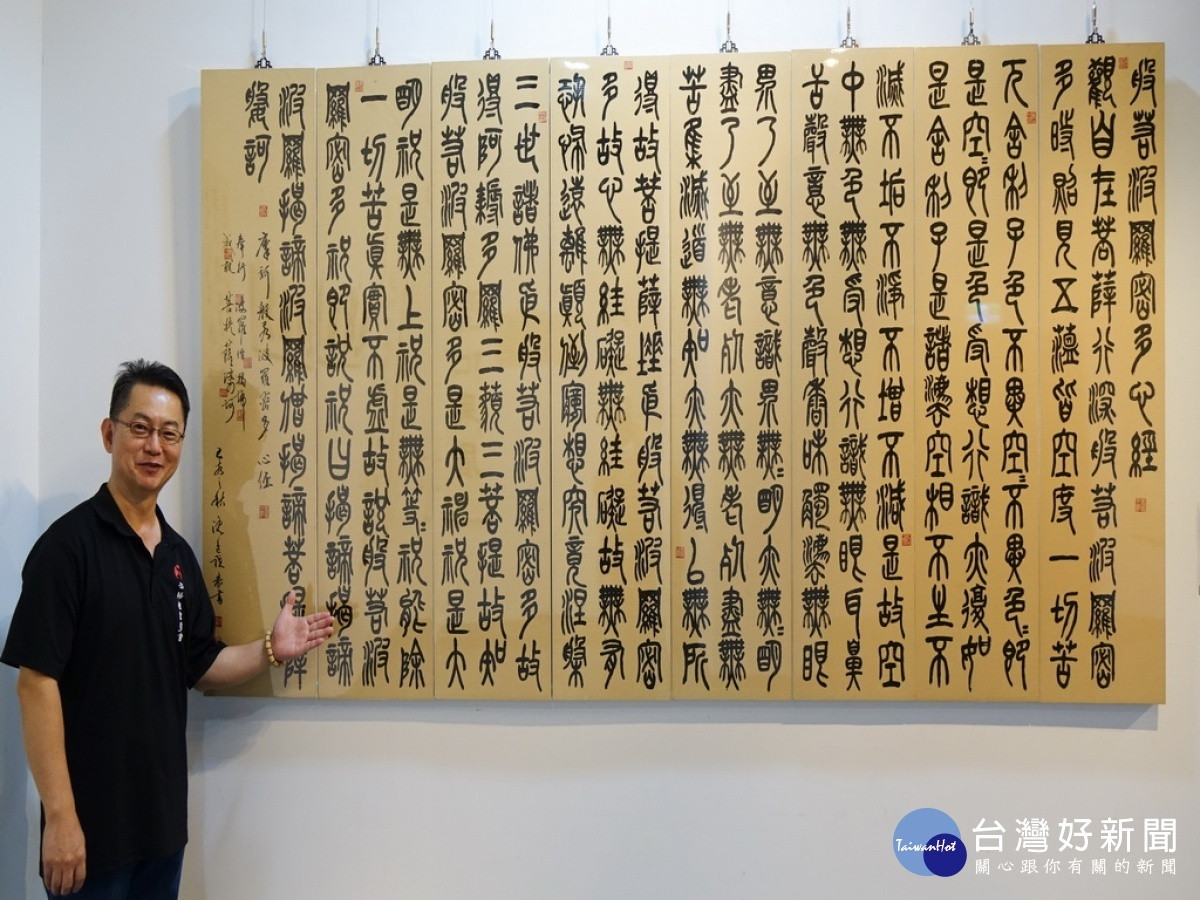 般若波羅密多心經
觀自在菩薩行深般若波羅密
多時照見五蘊皆空度一切苦
厄舍利子色不異空=不異色=即
是空=即是色受想行識亦復如
是舍利子是諸法空相不生不
滅不垢不淨不增不減是故空
中無色無受想行識無眼耳鼻
舌聲意無色聲香味觸法無眼
界乃至無意識界無=明亦無=明
盡乃至無老死亦無老死盡無
苦集滅道無知亦無得以無所
得故菩提薩埵依般若波羅密
多故心無罣礙無罣礙故無有
恐怖遠離顛倒夢想究竟涅槃
三世諸佛依般若波羅密多故
得阿耨多羅三藐三菩提故知
般若波羅密多是大神祝是大
明祝是無上祝是無等=祝能除
一切苦真實不虛故說般若波
羅密多祝即說祝曰揭諦揭諦
波羅揭諦波羅僧揭諦菩提薩
婆訶
摩訶般若波羅蜜多心經
TaiwanHot
台灣好新聞
關心跟你有關的新聞